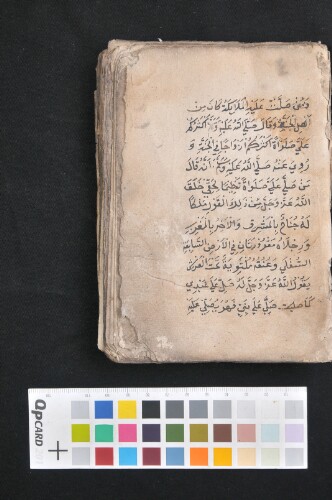 ومن صلت عليه الملائكة كان من
اهل الجنة وقال صلى الله عليه وسلم اكثركم
علي صلواة اكثركم ازواجا في الجنة و
روي عنه صلى الله عليه وسلم انه قال
من صلى علي صلواة تعظيما لحقي خلق
الله عز وجل من ذلك القول ملكا
له جناح بالمشرق والاخر بالمغرب
ورجلاه مقرورتان في الارض السابعة
السفلى وعنقه ملتوية تحت العرش
يقول الله عز وجل له صل على عبدي
كما صلى على نبي فهو يصلي عليه
QpCARD